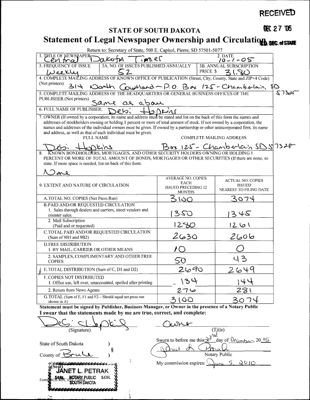 RECEIVED
DEC 27 '05
S.D. SEC. of STATE
STATE OF SOUTH DAKOTA
Statement of Legal Newspaper Ownership and Circulation
Return to: Secretary of State, 500 E. Capitol, Pierre, SD 57501-5077
1. TITLE OF NEWSPAPER
Central Dakota Times
2. DATE
10-1-05
3. FREQUENCY OF ISSUE
Weekly
3A. NO. OF ISSUES PUBLISHED ANNUALLY
52
3B. ANNUAL SUBSCRIPTION
PRICE $ 31.80
4. COMPLETE MAILING ADDRESS OF KNOWN OFFICE OF PUBLICATION (Street, City, County, State and ZIP+4 Code)
(Not printers)
314 North Courtland - P.O. Box 125 - Chamberlain, SD
57325
5. COMPLETE MAILING ADDRESS OF THE HEADQUARTERS OR GENERAL BUSINESS OFFICES OF THE
PUBLISHER (Not printers)
Same as above
6. FULL NAME OF PUBLISHER
Debi Hopkins
7. OWNER (If owned by a corporation, its name and address must be stated and list on the back of this form the names and
addresses of stockholders owning or holding 1 percent or more of total amount of stock. If not owned by a corporation, the
names and addresses of the individual owners must be given. If owned by a partnership or other unincorporated firm, its name
and address, as well as that of each individual must be given.
FULL NAME
COMPLETE MAILING ADDRESS
Debi Hopkins
Box 125 - Chamberlain SD 57325
8. KNOWN BONDHOLDERS, MORTGAGEES, AND OTHER SECURITY HOLDERS OWNING OR HOLDING 1
PERCENT OR MORE OF TOTAL AMOUNT OF BONDS, MORTGAGES OR OTHER SECURITIES (If there are none, so
state. If more space is needed, list on back of this form.
None
9. EXTENT AND NATURE OF CIRCULATION
AVERAGE NO. COPIES EACH ISSUED PRECEDING 12 MONTHS
ACTUAL NO. COPIES ISSUED NEAREST TO FILING DATE
A. TOTAL NO. COPIES (Net Press Run)
3100
3074
B. PAID AND/OR REQUESTED CIRCULATION
1. Sales through dealers and carriers, street vendors and
counter sales.
1350
1345
2. Mail Subscription
(Paid and or requested)
1280
1261
C. TOTAL PAID AND/OR REQUESTED CIRCULATION
(Sum of 9B1 and 9B2)
2630
2606
D. FREE DISTRIBUTION
1. BY MAIL, CARRIER OR OTHER MEANS
10
0
2. SAMPLES, COMPLIMENTARY AND OTHER FREE
COPIES
50
43
E. TOTAL DISTRIBUTION (Sum of C, D1 and D2)
2690
2649
F. COPIES NOT DISTRIBUTED
1. Office use, left over, unaccounted, spoiled after printing
134
144
2. Return from News Agents
276
281
G. TOTAL (Sum of E, F1 and F2 - Should equal net press run
shown in A)
3100
3074
Statement must be signed by Publisher, Business Manager, or Owner in the presence of a Notary Public
I swear that the statements made by me are true, correct, and complete:
Owner
(Signature)
(Title)
State of South Dakota )
County of Brule )
Sworn to before me this day of December, 2005
Notary Public
My commission expires:
JANET L. PETRAK
SEAL NOTARY PUBLIC SEAL
SOUTH DAKOTA